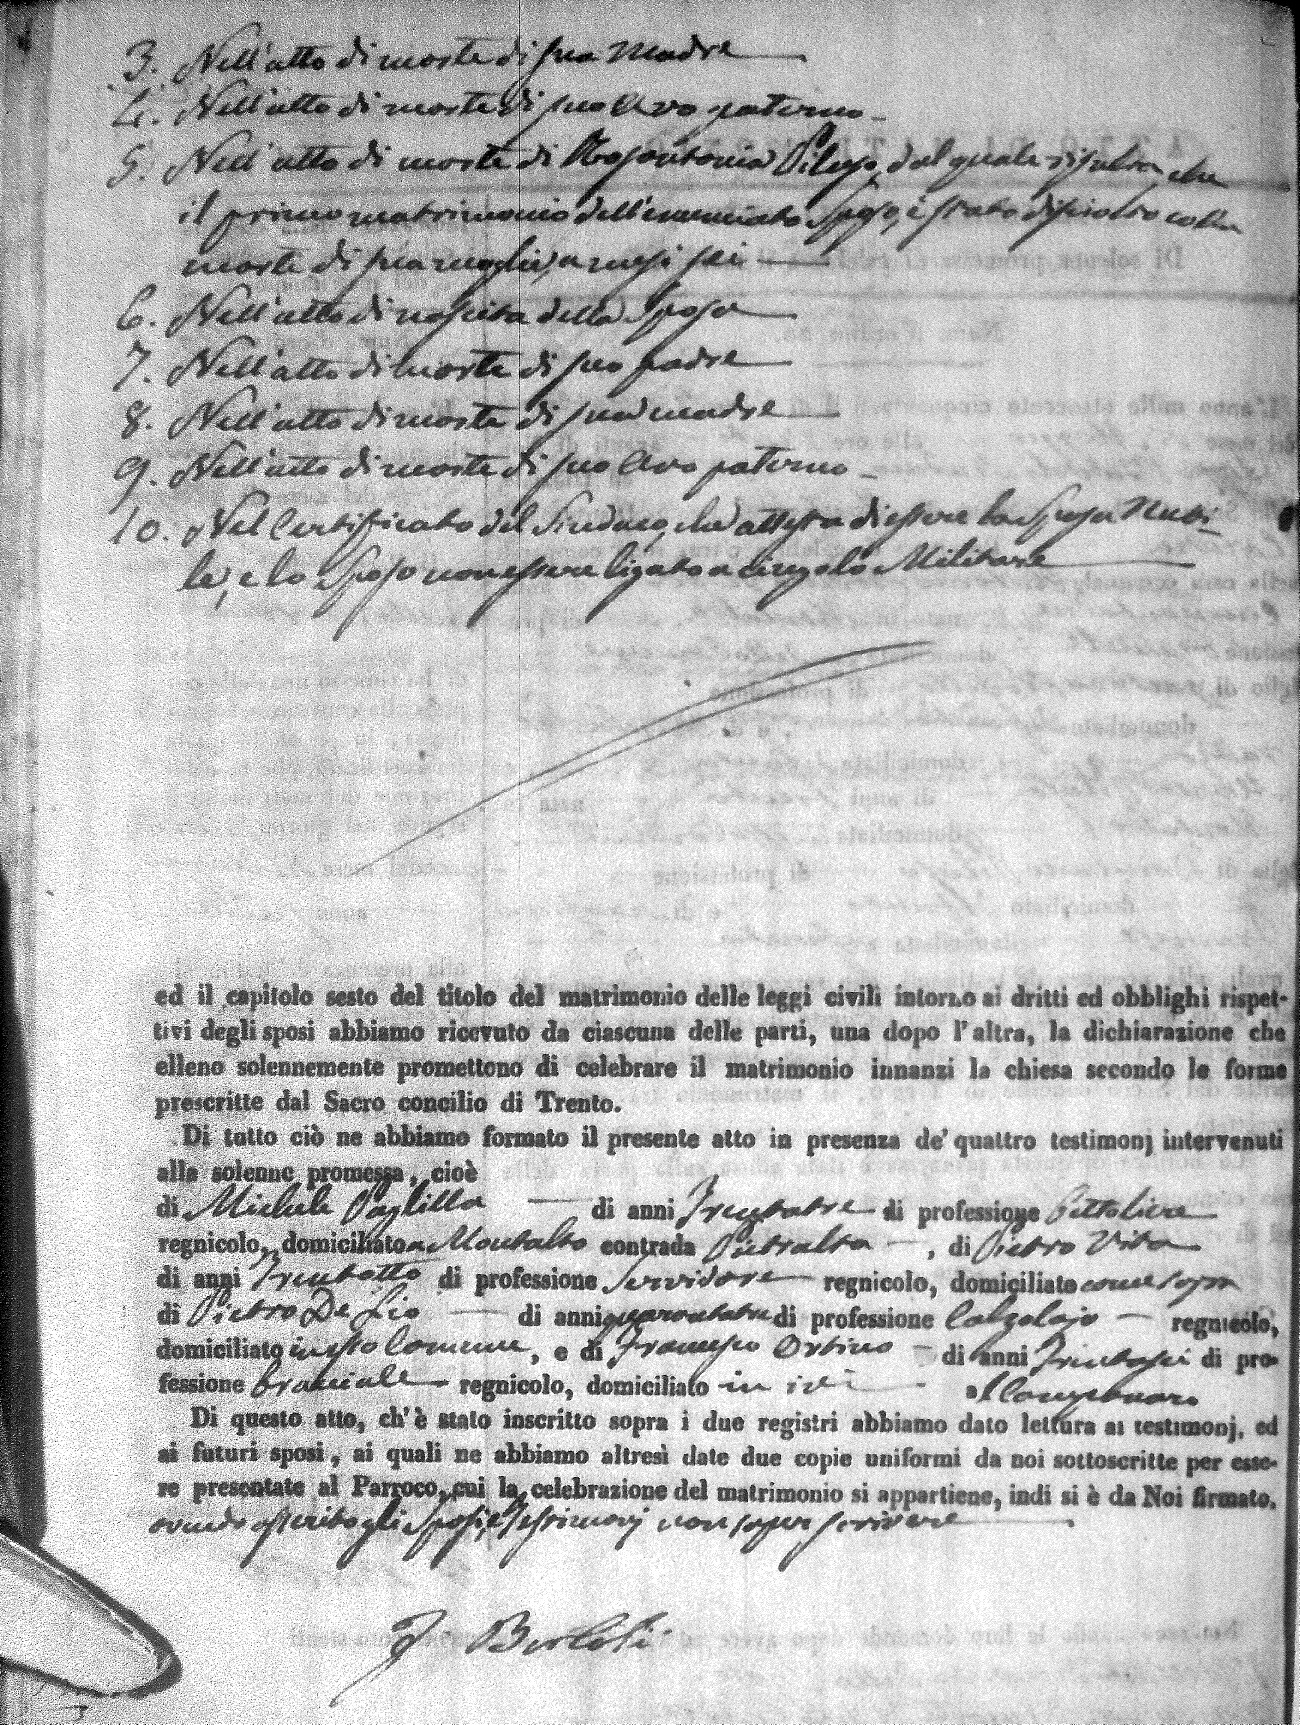 3. Nell'atto di morte di sua Madre
4. Nell'atto di morte di suo Avo paterno
5. Nell'atto di morte di Rosantonia dal quale risulta, che
il primo matrimonio dell'enunciato Sposo, è stato disciolto colla
morte di sua moglie, a mesi sei
6. Nell'atto di nascita della Sposa
7. Nell'atto di morte di suo padre
8. Nell'atto di morte di sua madre
9. Nell'atto di morte di suo Avo paterno
10. Nel Certificato del Sindaco, che attesta di essere la Sposa Nubi-
le, e lo Sposo non essere ligato a cingolo Militare
ed il capitolo sesto del titolo del matrimonio delle leggi civili intorno ai dritti ed obblighi rispet-
tivi degli sposi abbiamo ricevuto da ciascuna delle parti, una dopo l'altra, la dichiarazione che
elleno solennemente promettono di celebrare il matrimonio innanzi la chiesa secondo le forme
prescritte dal Sacro concilio di Trento.
Di tutto ciò ne abbiamo formato il presente atto in presenza de' quattro testimonj intervenuti
alla solenne promessa, cioè
di Michele Paglilla di anni Trentatre di professione
regnicolo, domiciliato a Montalto contrada Pietralta, di Pietro Vita
di anni Trentotto di professione Servidore regnicolo, domiciliato come sopra
di Pietro De Lio di anni quarantatre di professione Calzolajo regnicolo,
domiciliato in qsto Comune, e di Francesco Ortino di anni Trentasei di pro-
fessione bracciale regnicolo, domiciliato in ivi
Di questo atto, ch'è stato inscritto sopra i due registri abbiamo dato lettura ai testimonj, ed
ai futuri sposi, ai quali ne abbiamo altresì date due copie uniformi da noi sottoscritte per esse-
re presentate al Parroco, cui la celebrazione del matrimonio si appartiene, indi si è da Noi firmato,
avendo asserito gli Sposi, e Testimonj non saper scrivere